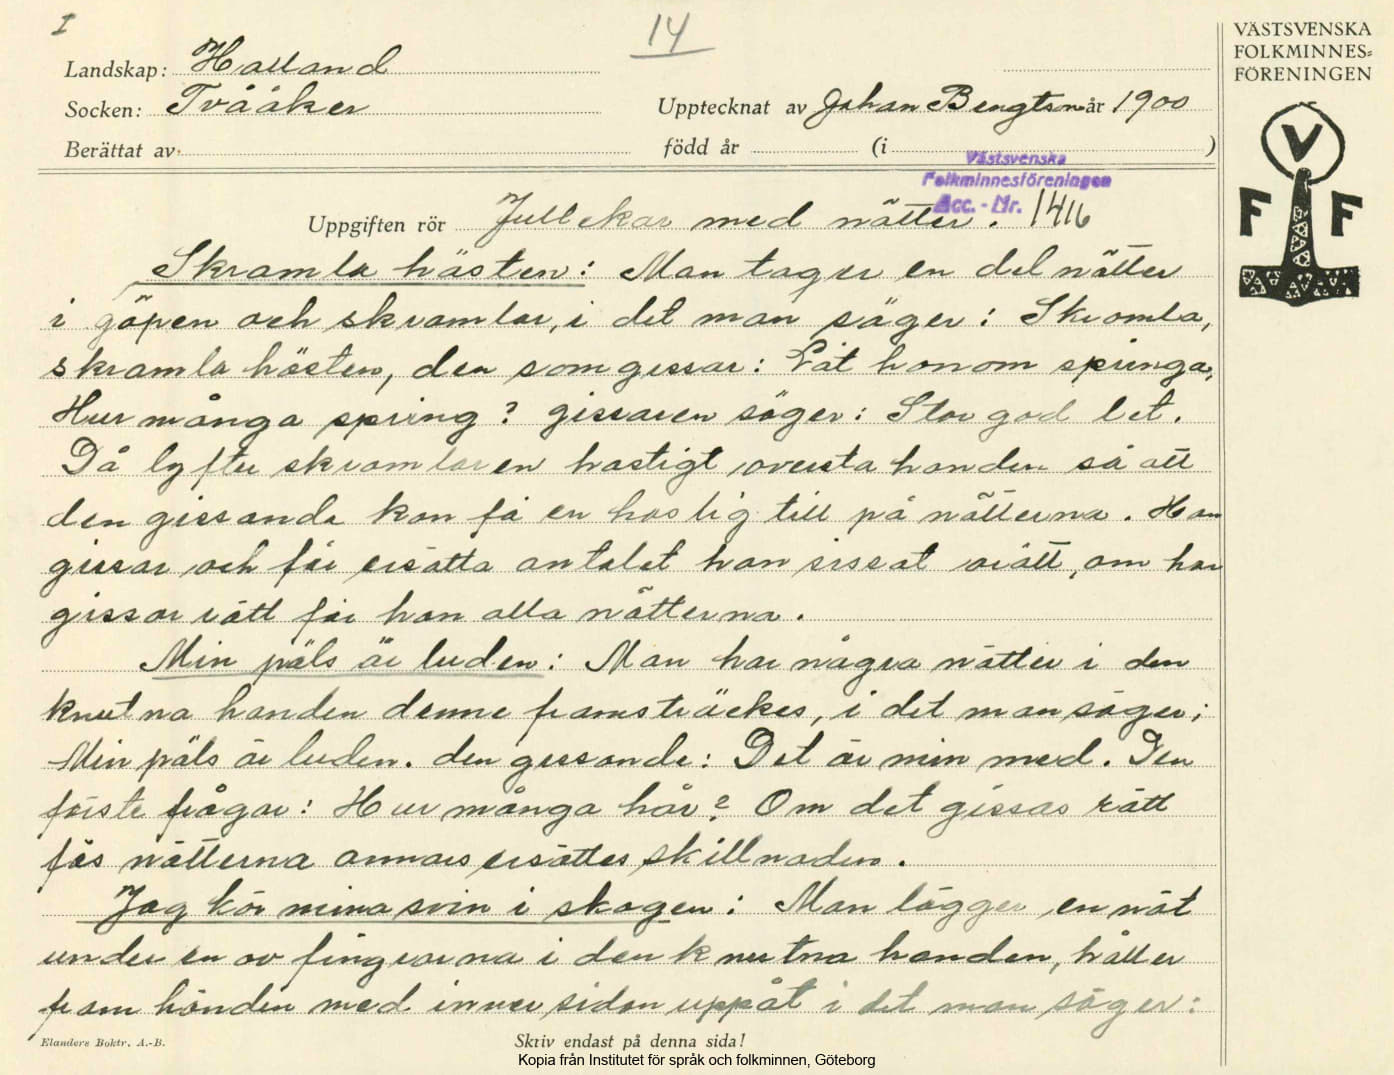 I
14
VÄSTSVENSKA
FOLKMINNES=
FÖRENINGEN
Landskap: Halland
Socken: Tvååker
Upptecknat av Johan Bengtson år 1900
Berättat av
född år (i )
Västsvenska
Folkminnesföreningen
Acc. - Nr. 1416
V
F F
Uppgiften rör Jullekar med nötter.
Skramla hästen: Man tager en del nötter
i göpen och skramlar, i det man säger: Skramla,
skramla hästen, den som gissar: Låt honom springa,
Hur många spring? gissaren säger: Stor god let.
Då lyfter skramlaren hastigt översta handen så att
den gissande kan få en hastig titt på nötterna. Han
gissar och får ersätta antalet han gissat orätt, om han
gissar rätt får han alla nötterna.
Min päls är luden: Man har några nötter i den
knutna handen denne framsträckes, i det man säger;
Min päls är luden. den gissande: Det är min med. Den
förste frågar: Hur många hår? Om det gissas rätt
fås nötterna annars ersättes skillnaden.
Jag kör mina svin i skogen: Man lägger en nöt
under en av fingrarna i den knutna handen, håller
fram handen med inner sidan uppåt i det man säger:
Elanders Boktr. A.-B.
Skriv endast på denna sida!
Kopia från Institutet för språk och folkminnen, Göteborg